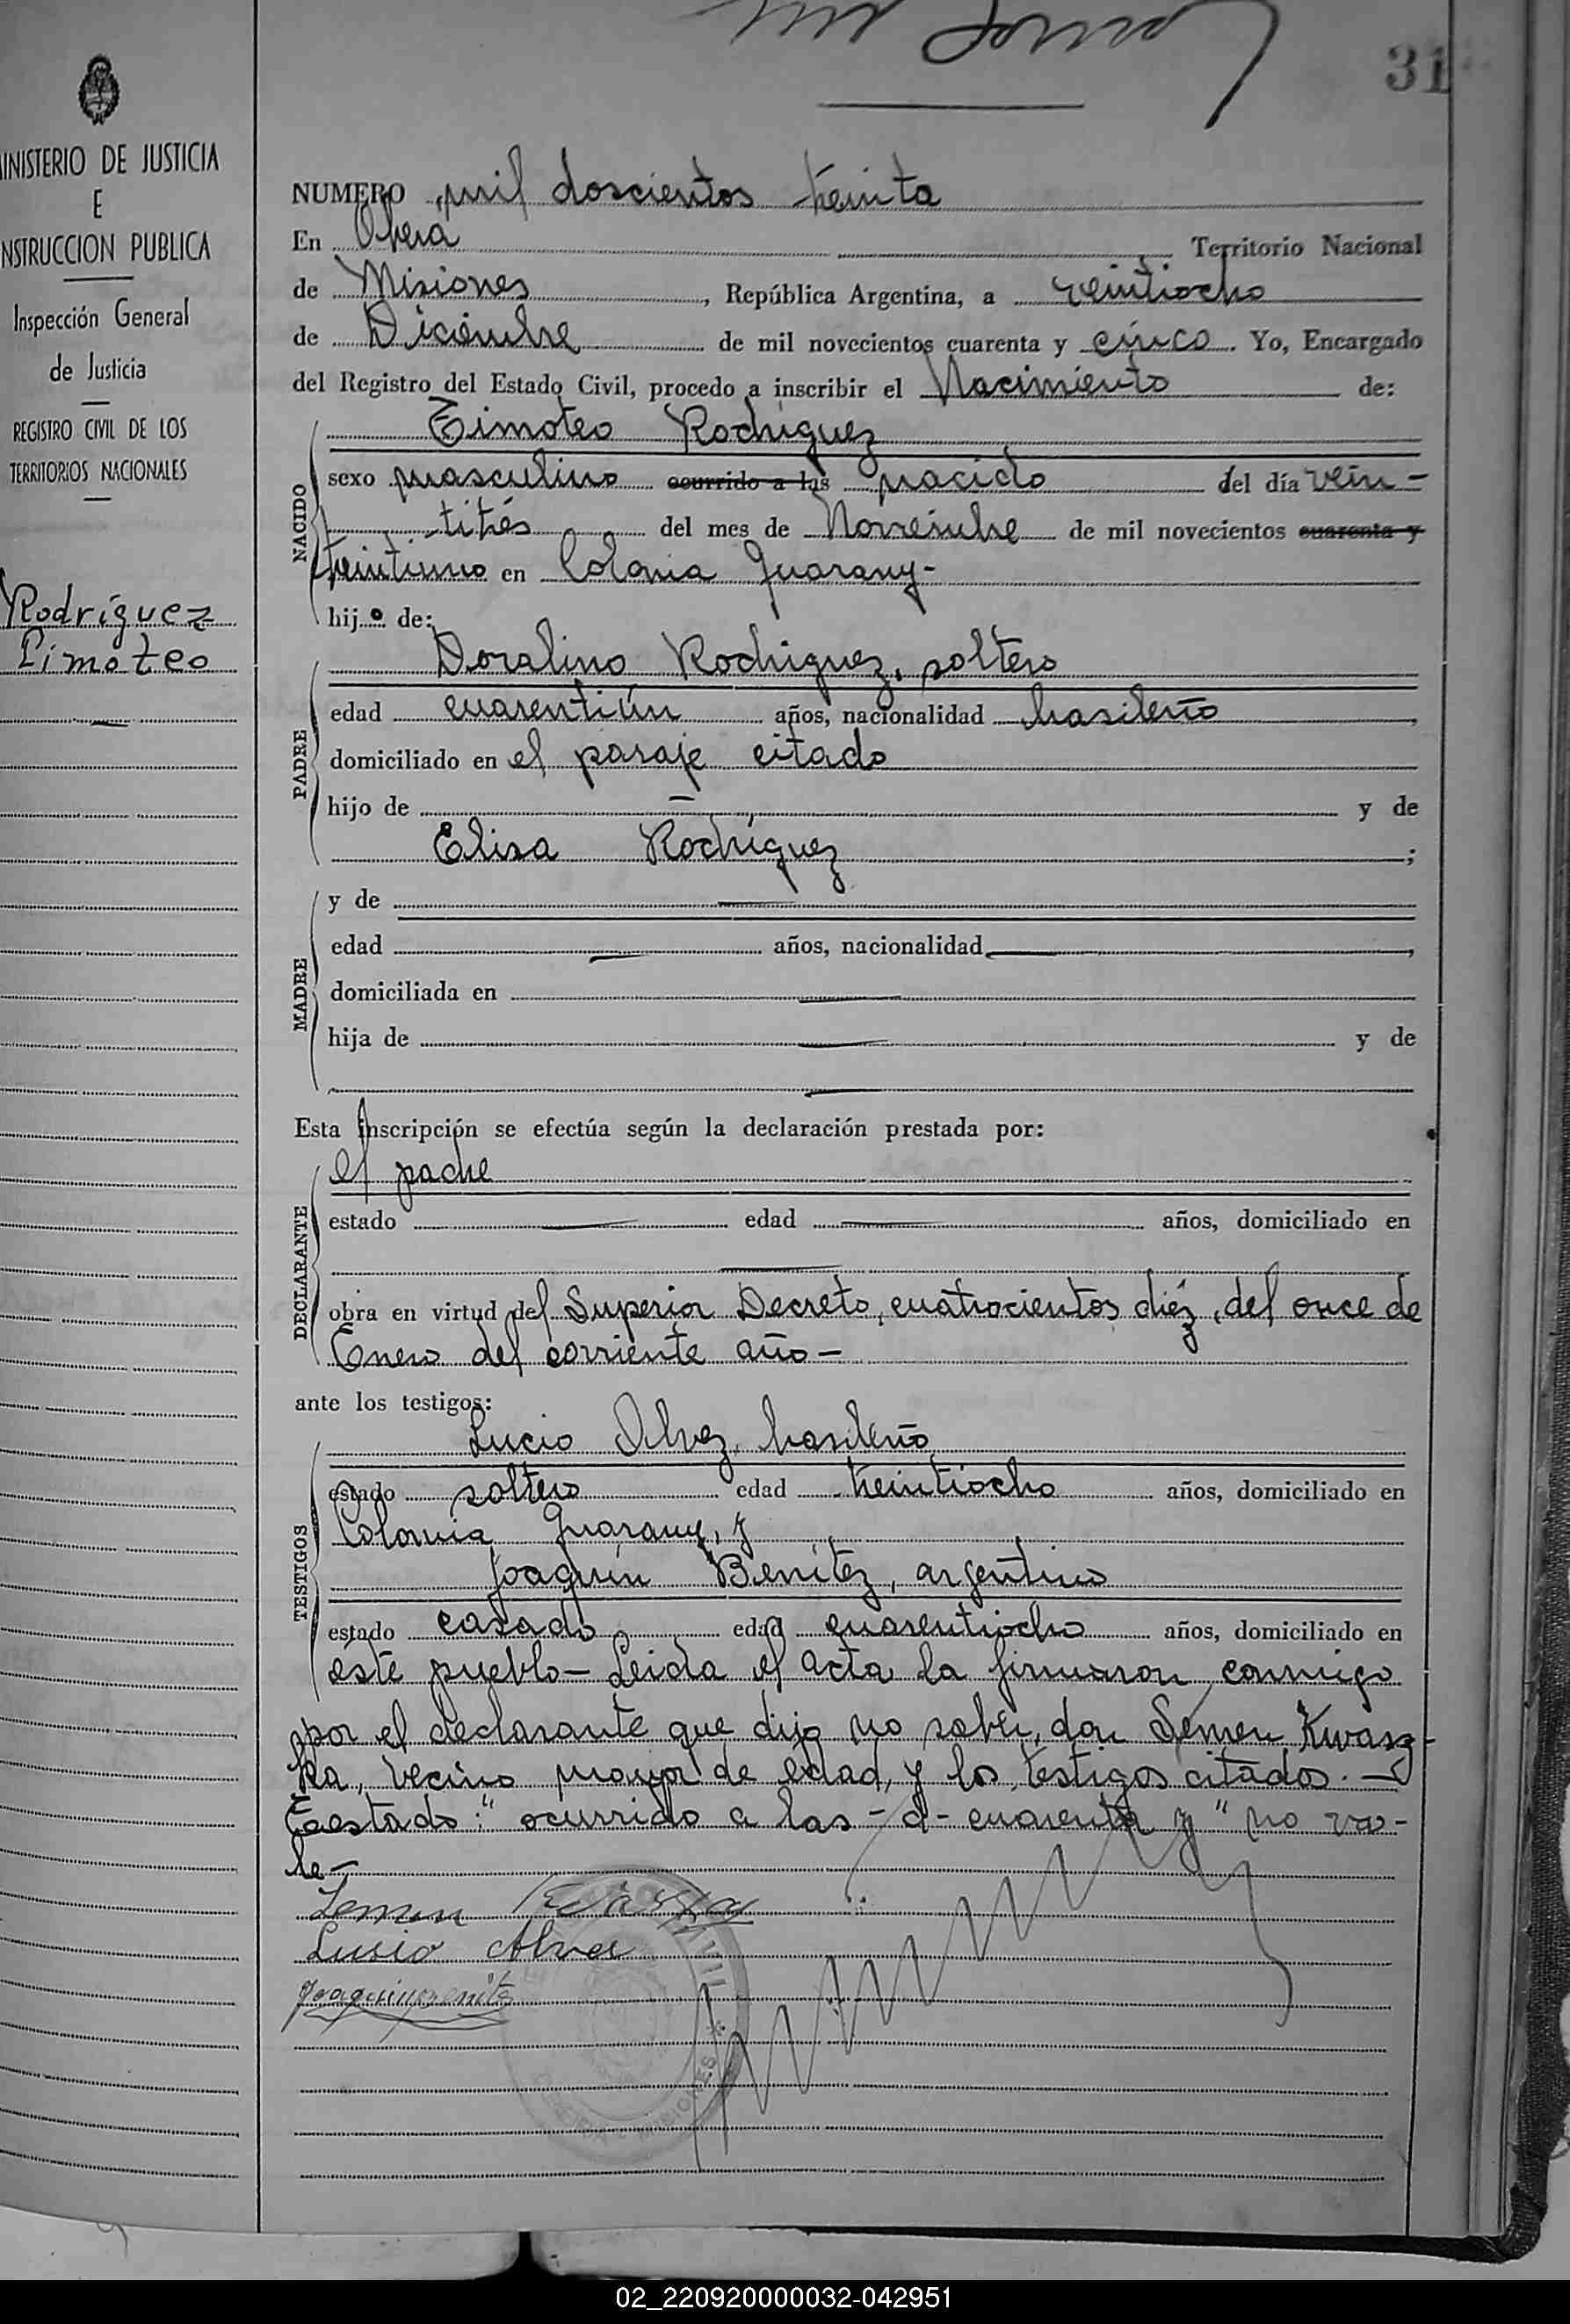 31
MINISTERIO DE JUSTICIA
E
INSTRUCCION PUBLICA
Inspección General
de Justicia
REGISTRO CIVIL DE LOS
TERRITORIOS NACIONALES
Rodríguez
Timoteo
NUMERO mil doscientos treinta
En Oberá Territorio Nacional
de Misiones, República Argentina, a veintiocho
de Diciembre de mil novecientos cuarenta y cinco. Yo, Encargado
del Registro del Estado Civil, procedo a inscribir el Nacimiento de:
NACIDO
Timoteo Rodriguez
sexo masculino ocurrido a las nacido del día vein-
titrés del mes de Noviembre de mil novecientos cuarenta y
treintiuno en Colonia Guarany-
hijo de:
PADRE
Doralino Rodriguez, soltero
edad cuarentiún años, nacionalidad brasileño,
domiciliado en el paraje citado
hijo de — y de
Elisa Rodríguez;
MADRE
y de —
edad — años, nacionalidad —,
domiciliada en —
hija de — y de
—
Esta inscripción se efectúa según la declaración prestada por:
DECLARANTE
el padre
estado — edad — años, domiciliado en
—
obra en virtud del Superior Decreto, cuatrocientos diéz, del once de
Enero del corriente año-
ante los testigos:
TESTIGOS
Lucio Alvez, brasileño
estado soltero edad treintiocho años, domiciliado en
Colonia Guarany, y
Joaquín Benítez, argentino
estado casado edad cuarentiocho años, domiciliado en
este pueblo- Leida el acta la firmaron conmigo
por el declarante que dijo no saber, don Semen Kwasz-
ka, vecino mayor de edad, y los testigos citados. —
Testado: "ocurrido a las - a - cuarenta y" no va-
le-
Semen
Lusio Alves
Joaquin Benits
02_220920000032-042951